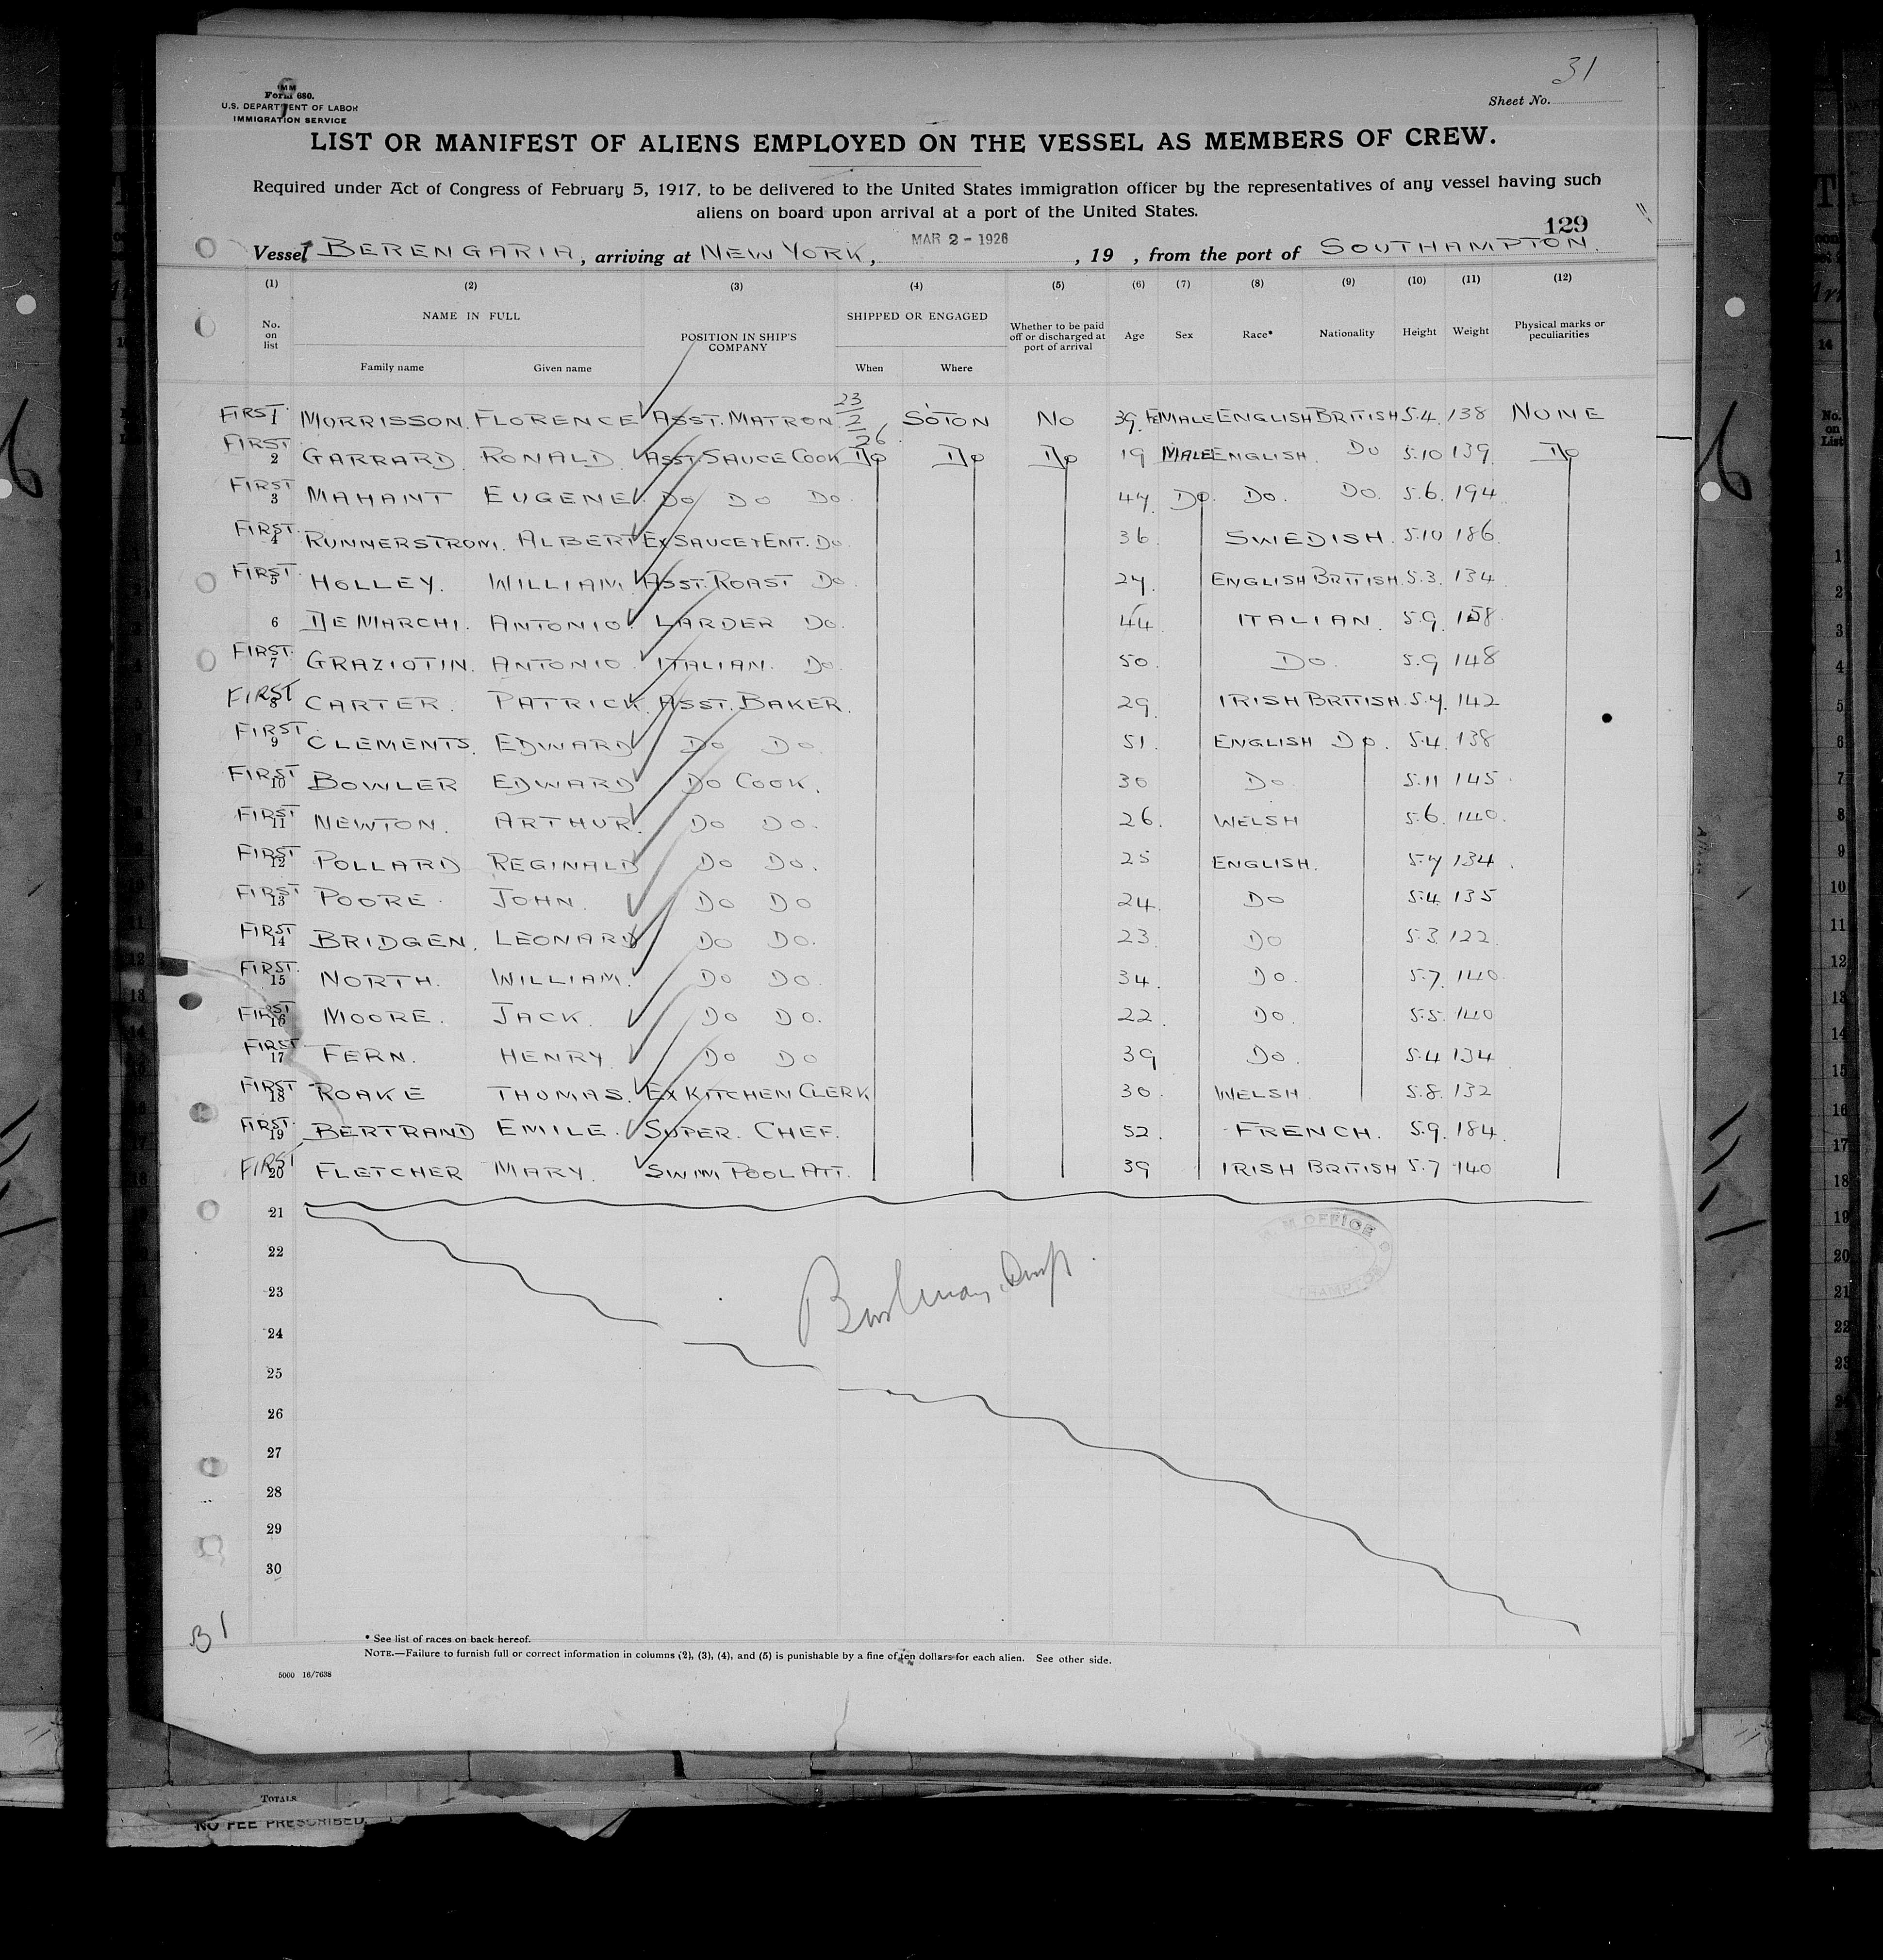 31
IMM
Form 680.
U.S. DEPARTMENT OF LABOR
IMMIGRATION SERVICE
Sheet No.
LIST OR MANIFEST OF ALIENS EMPLOYED ON THE VESSEL AS MEMBERS OF CREW.
Required under Act of Congress of February 5, 1917, to be delivered to the United States immigration officer by the representatives of any vessel having such
aliens on board upon arrival at a port of the United States.
129
Vessel BERENGARIA, arriving at NEW YORK, MAR 2 - 1926, 19 , from the port of SOUTHAMPTON.
(1) (2) (3) (4) (5) (6) (7) (8) (9) (10) (11) (12)
No. on list NAME IN FULL POSITION IN SHIP'S COMPANY SHIPPED OR ENGAGED Whether to be paid off or discharged at port of arrival Age Sex Race* Nationality Height Weight Physical marks or peculiarities
Family name Given name When Where
FIRST 1 MORRISSON. FLORENCE ASST. MATRON. 23/2/26. SOTON NO 39. FEMALE ENGLISH BRITISH 5.4. 138 NONE
FIRST 2 GARRARD. RONALD. ASST. SAUCE COOK DO DO DO 19 MALE ENGLISH. DO 5.10 139. DO
FIRST 3 MAHANT EUGENE. DO DO DO. 47. DO. DO. DO. 5.6. 194.
FIRST. 4 RUNNERSTROM. ALBERT EX SAUCE & ENT. DO. 36. SWEDISH. 5.10 186.
FIRST. 5 HOLLEY. WILLIAM. ASST. ROAST DO. 27. ENGLISH BRITISH. 5.3. 134.
6 DE MARCHI. ANTONIO. LARDER DO. 44. ITALIAN. 5.9. 158.
FIRST. 7 GRAZIOTIN. ANTONIO. ITALIAN. DO. 50. DO. 5.9 148
FIRST 8 CARTER. PATRICK. ASST. BAKER. 29. IRISH BRITISH. 5.7. 142
FIRST 9 CLEMENTS. EDWARD DO DO. 51. ENGLISH DO. 5.4. 138
FIRST 10 BOWLER EDWARD DO COOK. 30 DO 5.11 145.
FIRST 11 NEWTON. ARTHUR. DO DO. 26. WELSH 5.6. 140.
FIRST 12 POLLARD REGINALD DO DO. 25 ENGLISH. 5.7 134.
FIRST 13 POORE. JOHN. DO DO 24. DO 5.4. 135
FIRST 14 BRIDGEN. LEONARD DO DO. 23. DO 5.3. 122.
FIRST. 15 NORTH. WILLIAM. DO DO. 34. DO. 5.7. 140.
FIRST 16 MOORE. JACK. DO DO. 22. DO. 5.5. 140
FIRST 17 FERN. HENRY. DO DO 39 DO. 5.4 134.
FIRST 18 ROAKE THOMAS. EX KITCHEN CLERK 30. WELSH. 5.8. 132
FIRST. 19 BERTRAND EMILE. SUPER. CHEF. 52. FRENCH. 5.9. 184.
FIRST 20 FLETCHER MARY. SWIM. POOL ATT. 39 IRISH BRITISH 5.7 140
21
22
23
24
25
26
27
28
29
30
31
* See list of races on back hereof.
NOTE.—Failure to furnish full or correct information in columns (2), (3), (4), and (5) is punishable by a fine of ten dollars for each alien. See other side.
5000 16/7638
TOTALS
NO FEE PRESCRIBED